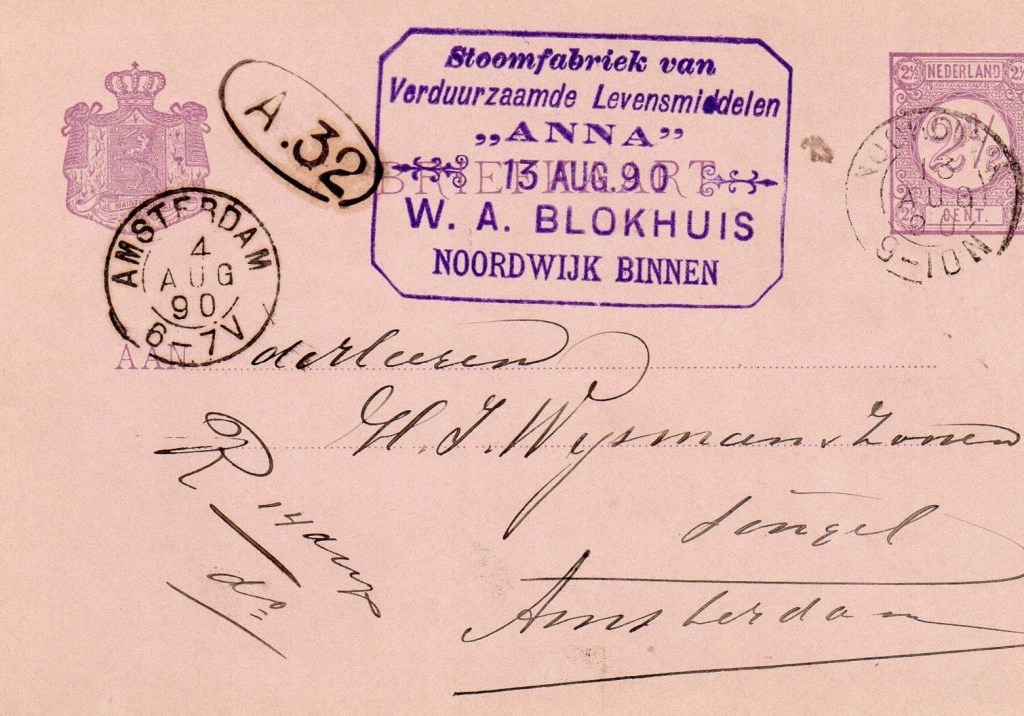 Stoomfabriek van
Verduurzaamde Levensmiddelen
„ANNA”
13 AUG. 90
W. A. BLOKHUIS
NOORDWIJK BINNEN
A.32
BRIEFKAART
2½ NEDERLAND 2½
2½
CENT.
AUG
90
AMSTERDAM
4
AUG
90
6-7V
AAN
de Heeren
H. J. Wijsman & Zonen
Singel
Amsterdam
R 14 Aug
do